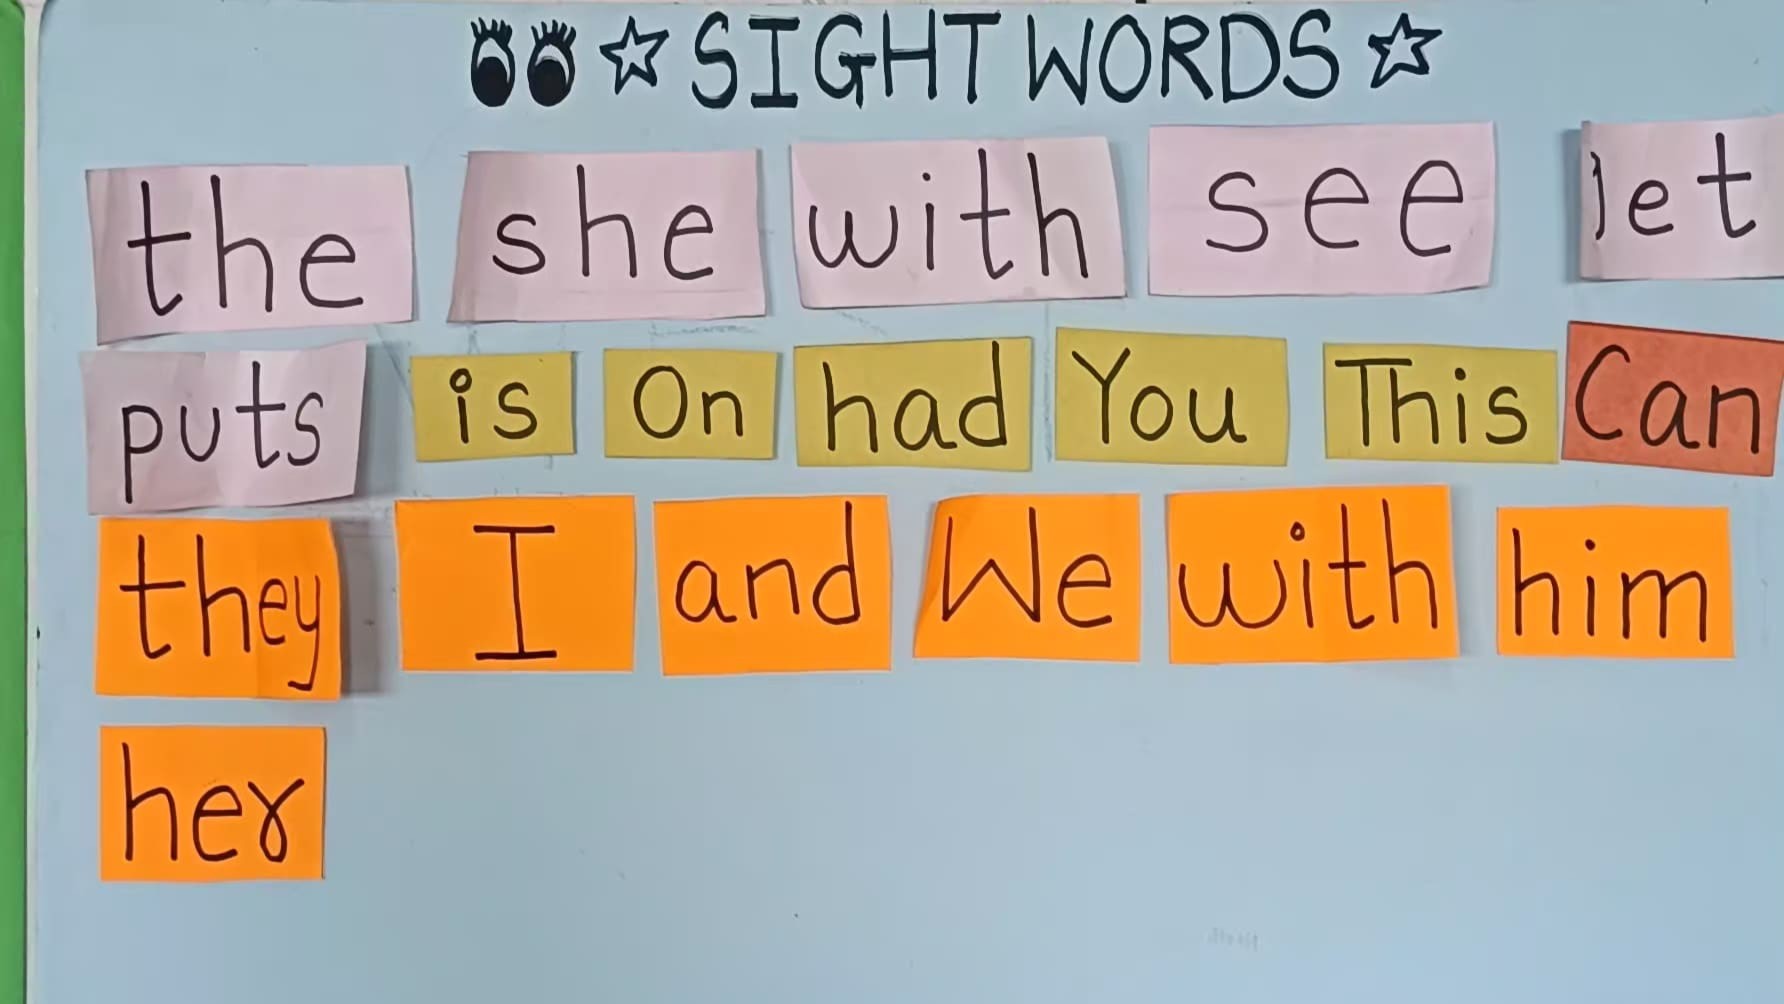 SIGHT WORDS
the she with see let
puts is On had You This Can
they I and We with him
her